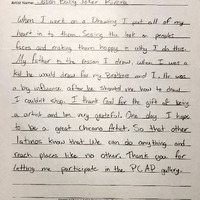 Artist Name: Juan Baby Joker Rivera
When I work on a Drawing I put all of my
heart in to them. Seeing the look on peoples
faces and making them happy is why I do this.
My father is the reason I draw, when I was a
kid he would draw for my Brothers and I. He was
a big influence after he showed me how to draw
I couldn't stop. I thank God for the gift of being
a artist and Im very grateful. One day I hope
to be a great Chicano Artist. So that other
latinos know that We can do anything and
reach places like no other. Thank you for
letting me participate in the PCAP gallery.